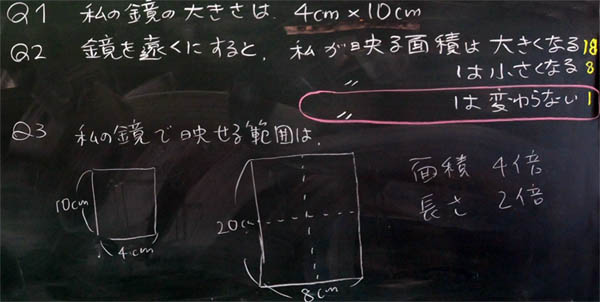 Q1 私の鏡の大きさは 4cm×10cm
Q2 鏡を遠くにすると、私が映る面積は大きくなる 18
〃 は小さくなる 8
〃 は変わらない 1
Q3 私の鏡で映せる範囲は、
10cm
4cm
20cm
8cm
面積 4倍
長さ 2倍